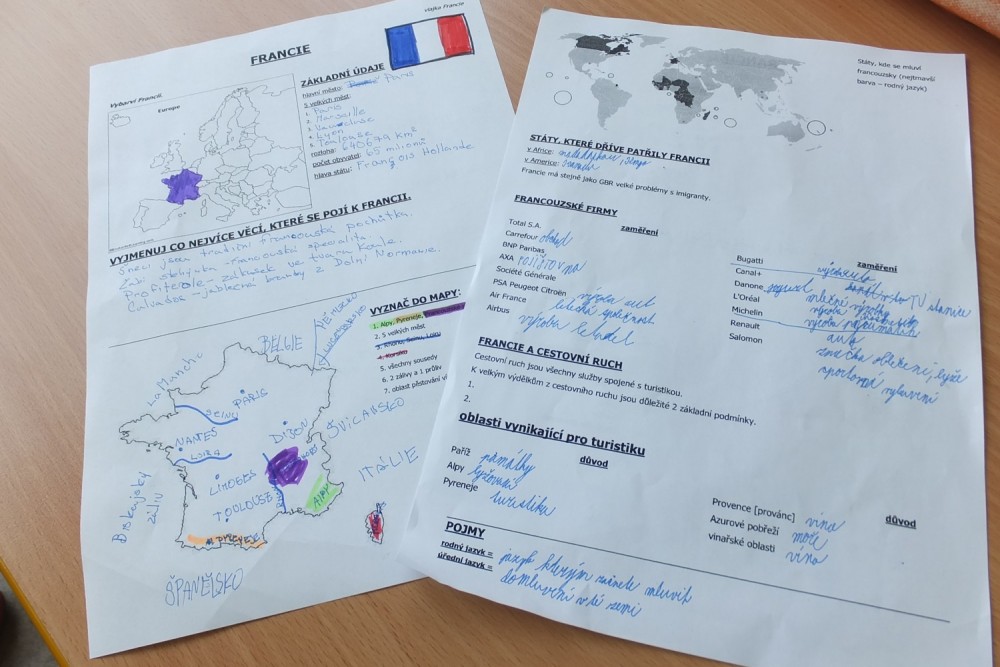 vlajka Francie
FRANCIE
Vybarvi Francii.
Europe
ZÁKLADNÍ ÚDAJE
hlavní město: Paris
5 velkých měst:
1. Paris
2. Marseille
3.
4. Lyon
5. Toulouse
rozloha: 640679 km²
počet obyvatel: 65 milionů
hlava státu: François Hollande
VYJMENUJ CO NEJVÍCE VĚCÍ, KTERÉ SE POJÍ K FRANCII.
Šneci jsou tradiční francouzská pochůtka.
Žabí stehýnka - francouzská specialita
Profiterole - zákusek ve tvaru koule.
Calvados - jablečné brandy z Dolní Normanie.
VYZNAČ DO MAPY:
1. Alpy, Pyreneje,
2. 5 velkých měst
3. Rhonu, Seinu, Loiru
4. Korsiku
5. všechny sousedy
6. 2 zálivy a 1 průliv
7. oblast pěstování ví
NĚMECKO
LUCEMBURSKO
BELGIE
La Manche
PARIS
SEINU
NANTES
LOIRA
DIJON
ŠVÝCARSKO
LIMOGES
TOULOUSE
ALPY
ITÁLIE
Biskajský
záliv
PYRENEJE
ŠPANĚLSKO
Státy, kde se mluví
francouzsky (nejtmavší
barva – rodný jazyk)
STÁTY, KTERÉ DŘÍVE PATŘILY FRANCII
v Africe: madakaskar,
v Americe: Kanada
Francie má stejně jako GBR velké problémy s imigranty.
FRANCOUZSKÉ FIRMY
zaměření
Total S.A.
Carrefour obchod
BNP Paribas
AXA POJIŠŤOVNA
Société Générale
PSA Peugeot Citroën výroba aut
Air France letecká společnost
Airbus výroba letadel
zaměření
Bugatti
Canal+ TV stanice
Danone mléčné výrobky
L'Oréal
Michelin výroba pneumatik
Renault auta
Salomon značka oblečení, lyže
sportovní vybavení
FRANCIE A CESTOVNÍ RUCH
Cestovní ruch jsou všechny služby spojené s turistikou.
K velkým výdělkům z cestovního ruchu jsou důležité 2 základní podmínky.
1.
2.
oblasti vynikající pro turistiku
důvod
Paříž památky
Alpy lyžování
Pyreneje turistika
důvod
Provence [prováns] vína
Azurové pobřeží moře
vinařské oblasti vína
POJMY
rodný jazyk = jazyk kterým začnete mluvit
úřední jazyk = domluvení v té zemi